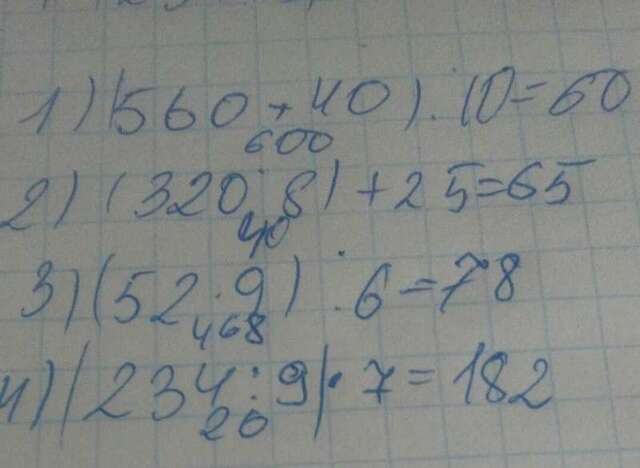 1) (560 + 40) : 10 = 60
600
2) (320 : 8) + 25 = 65
40
3) (52 · 9) : 6 = 78
468
4) (234 : 9) · 7 = 182
26